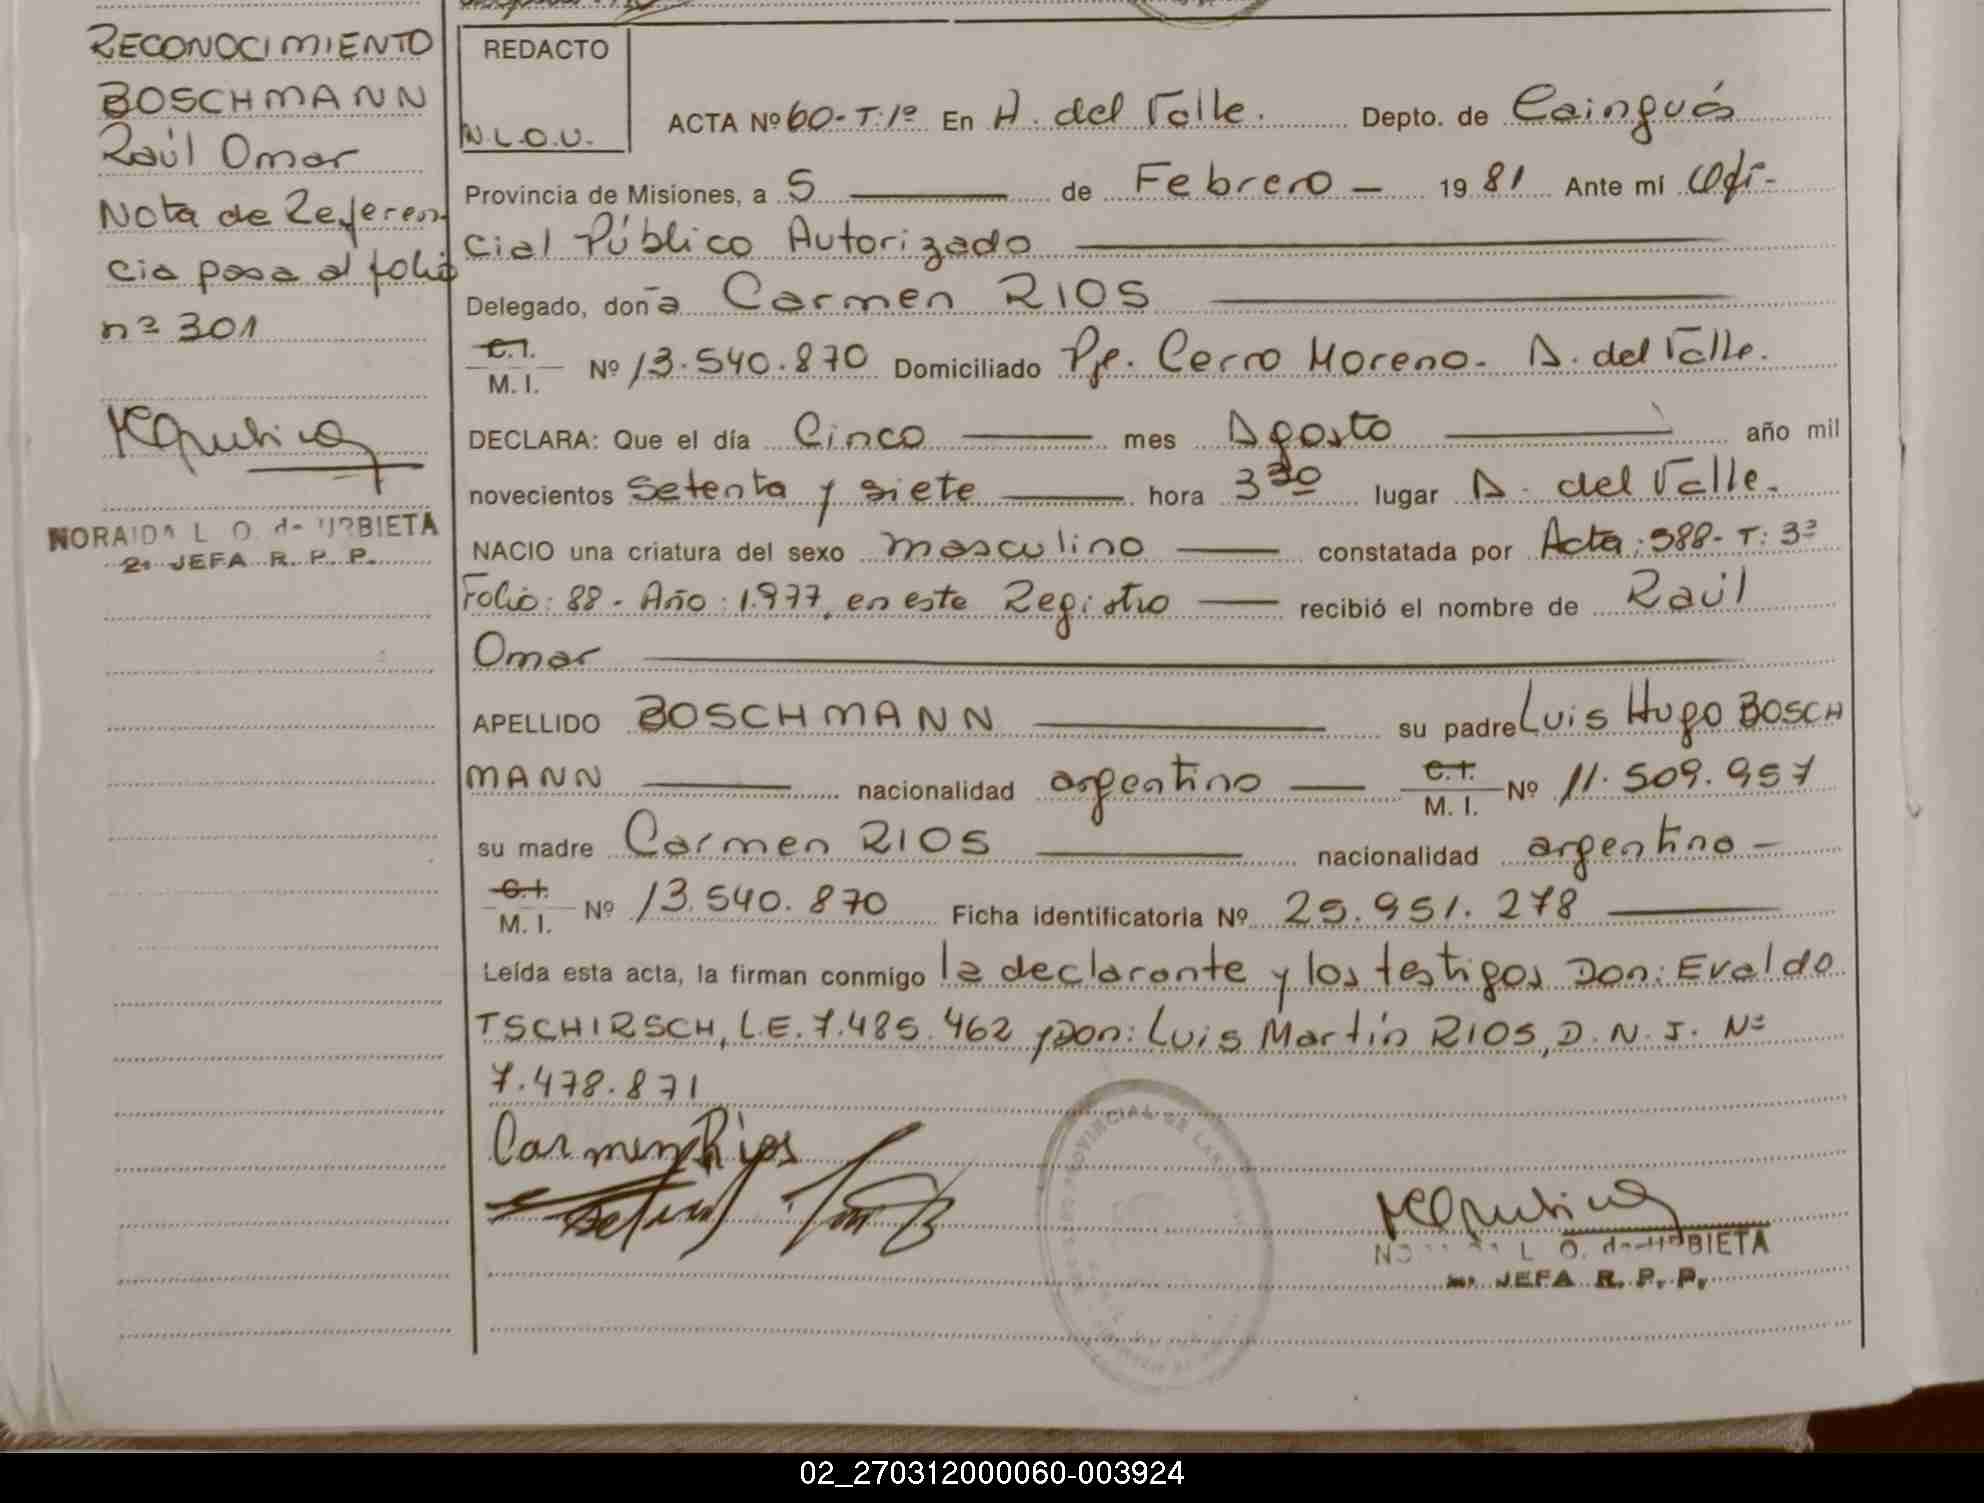 RECONOCIMIENTO
BOSCHMANN
Raúl Omar
Nota de Referen
cia pasa al folio
nº 301
NORAIDA L. O. de URBIETA
2ª JEFA R. P. P.
REDACTO
N.L.O.U.
ACTA Nº 60-T:1º En A. del Valle. Depto. de Cainguás
Provincia de Misiones, a 5 de Febrero 1981 Ante mí Ofi-
cial Público Autorizado
Delegado, doña Carmen RIOS
C.I.
M. I. Nº 13.540.870 Domiciliado Pje. Cerro Moreno- A. del Valle.
DECLARA: Que el día Cinco mes Agosto año mil
novecientos setenta y siete hora 3 30 lugar A. del Valle.
NACIO una criatura del sexo masculino constatada por Acta: 588- T: 3º
Folio: 88 - Año: 1.977, en este Registro recibió el nombre de Raúl
Omar
APELLIDO BOSCHMANN su padre Luis Hugo BOSCH
MANN nacionalidad argentino C.I. M. I. Nº 11.509.957
su madre Carmen RIOS nacionalidad argentina
C.I. M. I. Nº 13.540.870 Ficha identificatoria Nº 25.951.278
Leída esta acta, la firman conmigo la declarante y los testigos Don: Evaldo
TSCHIRSCH, L.E. 7.485.462 y Don: Luis Martín RIOS, D.N.I. Nº
7.478.871
Carmen Rios
PROVINCIAL DE LAS
L. O. de URBIETA
JEFA R. P. P.
02_270312000060-003924